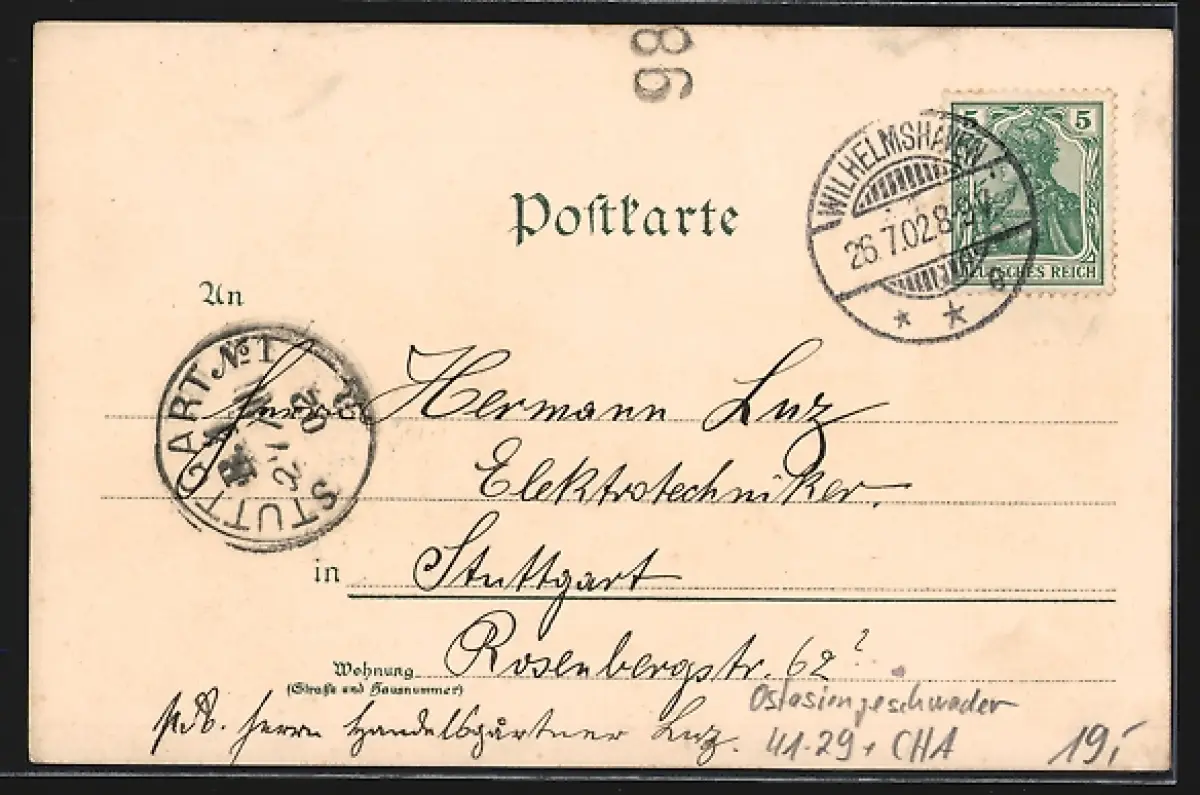 86
Postkarte
5 5
DEUTSCHES REICH
WILHELMSHAVEN
26.7.02.8-9
* * e
An
STUTTGART. No 1
27
02
Herrn Hermann Luz
Elektrotechniker.
in Stuttgart
Wohnung Rosenbergstr. 62?
(Straße und Hausnummer)
Herrn Handelsgärtner Luz.
Ostasiengeschwader
41-29 + CHA
19,-